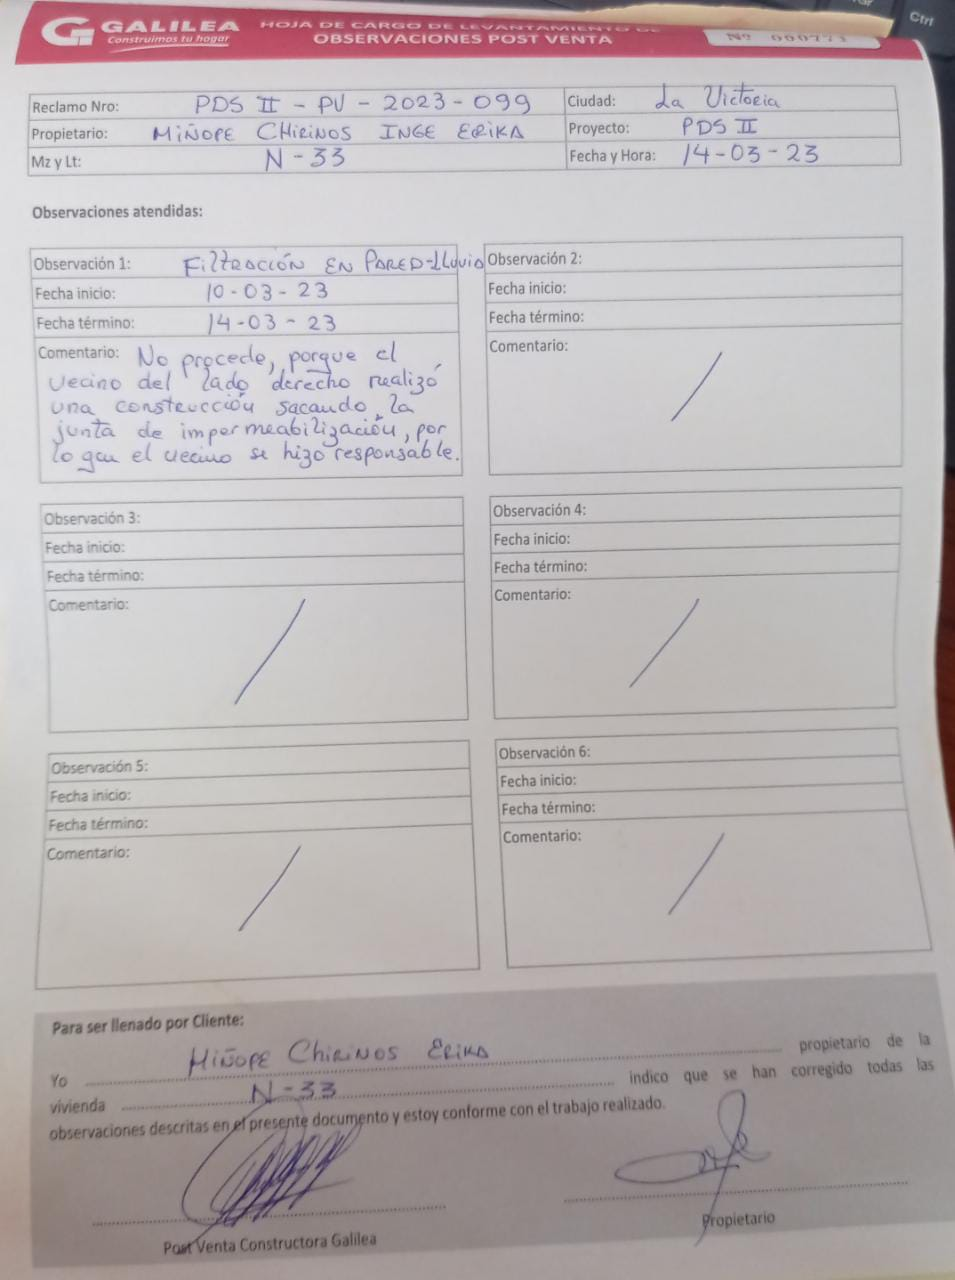 GALILEA
Construimos tu hogar
HOJA DE CARGO DE LEVANTAMIENTO DE
OBSERVACIONES POST VENTA
Nº 000773
Ctrl
Reclamo Nro: PDS II - PV - 2023 - 099
Ciudad: La Victoria
Propietario: MIÑOPE CHIRINOS INGE ERIKA
Proyecto: PDS II
Mz y Lt: N - 33
Fecha y Hora: 14-03-23
Observaciones atendidas:
Observación 1: FILTRACIÓN EN PARED-LLuvia
Fecha inicio: 10-03-23
Fecha término: 14-03-23
Comentario: No procede, porque el
vecino del lado derecho realizó
una construcción sacando la
junta de impermeabilización, por
lo que el vecino se hizo responsable.
Observación 2:
Fecha inicio:
Fecha término:
Comentario:
Observación 3:
Fecha inicio:
Fecha término:
Comentario:
Observación 4:
Fecha inicio:
Fecha término:
Comentario:
Observación 5:
Fecha inicio:
Fecha término:
Comentario:
Observación 6:
Fecha inicio:
Fecha término:
Comentario:
Para ser llenado por Cliente:
Yo MIÑOPE CHIRINOS ERIKA propietario de la
vivienda N-33 indico que se han corregido todas las
observaciones descritas en el presente documento y estoy conforme con el trabajo realizado.
Post Venta Constructora Galilea
Propietario